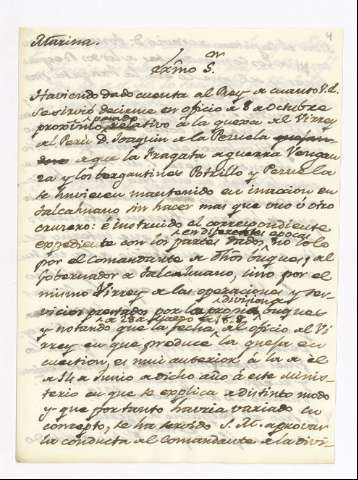 4
Marina.
Exmo Sor
Haviendo dado cuenta al Rey de cuanto V.E.
se sirvió decirme en oficio de 8 de Octubre
proximo pasado relativo á la quexa del Virrey
del Perú D. Joaquin de la Pezuela
de que la Fragata de guerra Vengan
za y los bergantines Potrillo y Pezuela
se huviesen mantenido en inaccion en
Talcahuano sin hacer mas que uno ó otro
crucero: é instruido el correspondiente
expediente con los partes dados en diferentes epocas, no solo
por el Comandante de dhos buques, del
Gobernador de Talcahuano, sino por el
mismo Virrey de las operaciones y ser
vicios prestados por buques
y notando que la fecha del oficio del Vi
rrey en que produce la quexa en
cuestion, es mui anterior á la de el
de 14 de Junio de dicho año á este minis
terio en que se explica de distinto modo
y que por tanto havria variado en
concepto, se ha servido S. M. aprovar
la conducta del Comandante de la divi